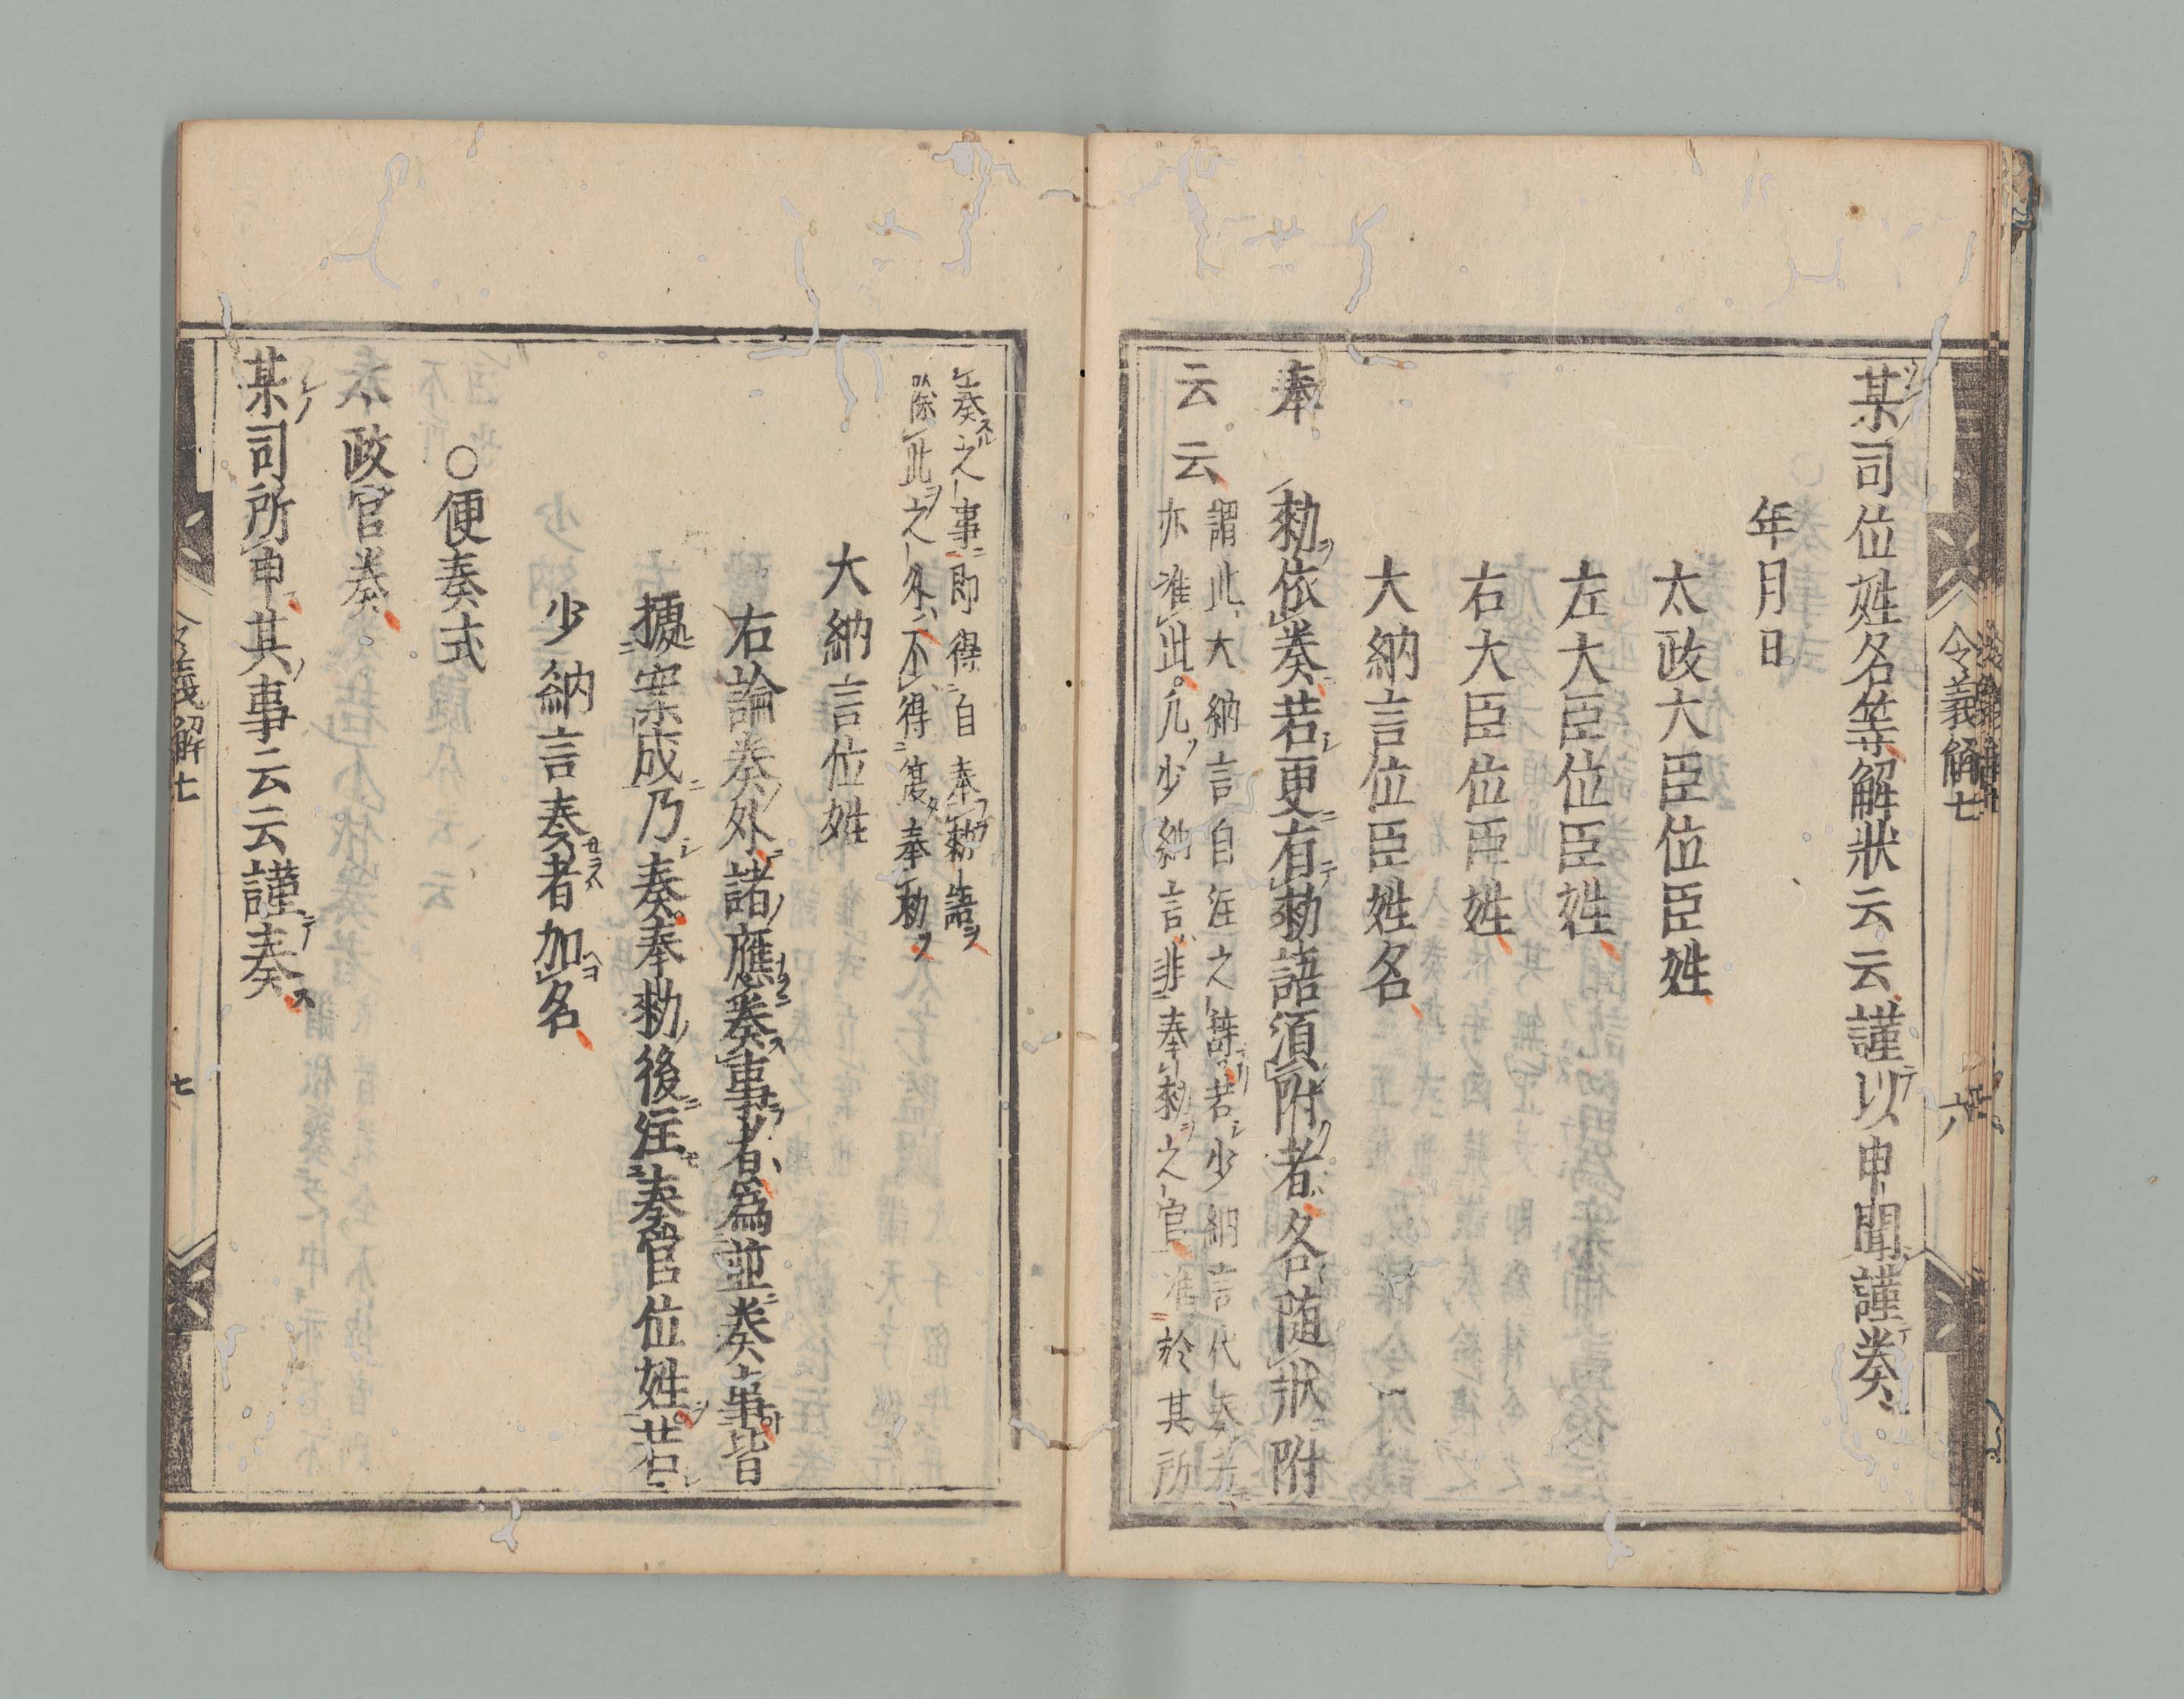 某司位姓名等解狀云云謹以申聞謹奏
年月日
太政大臣位臣姓
左大臣位臣姓
右大臣位臣姓
大納言位臣姓名
奉　勅依奏若更有勅語須附者各随狀附
云云
謂此大納言自注之等若少納言代奏者
亦准此凡少納言非奉勅之官准於其所
令義解七
六
奏之事即得自奉勅語
除此之外不得復奉勅
大納言位姓
右論奏外諸應奏事者為並奏事皆
據案成乃奏奉勅後注奏官位姓若
少納言奏者加名
○便奏式
太政官奏
某司所申其事云云謹奏
令義解七
七